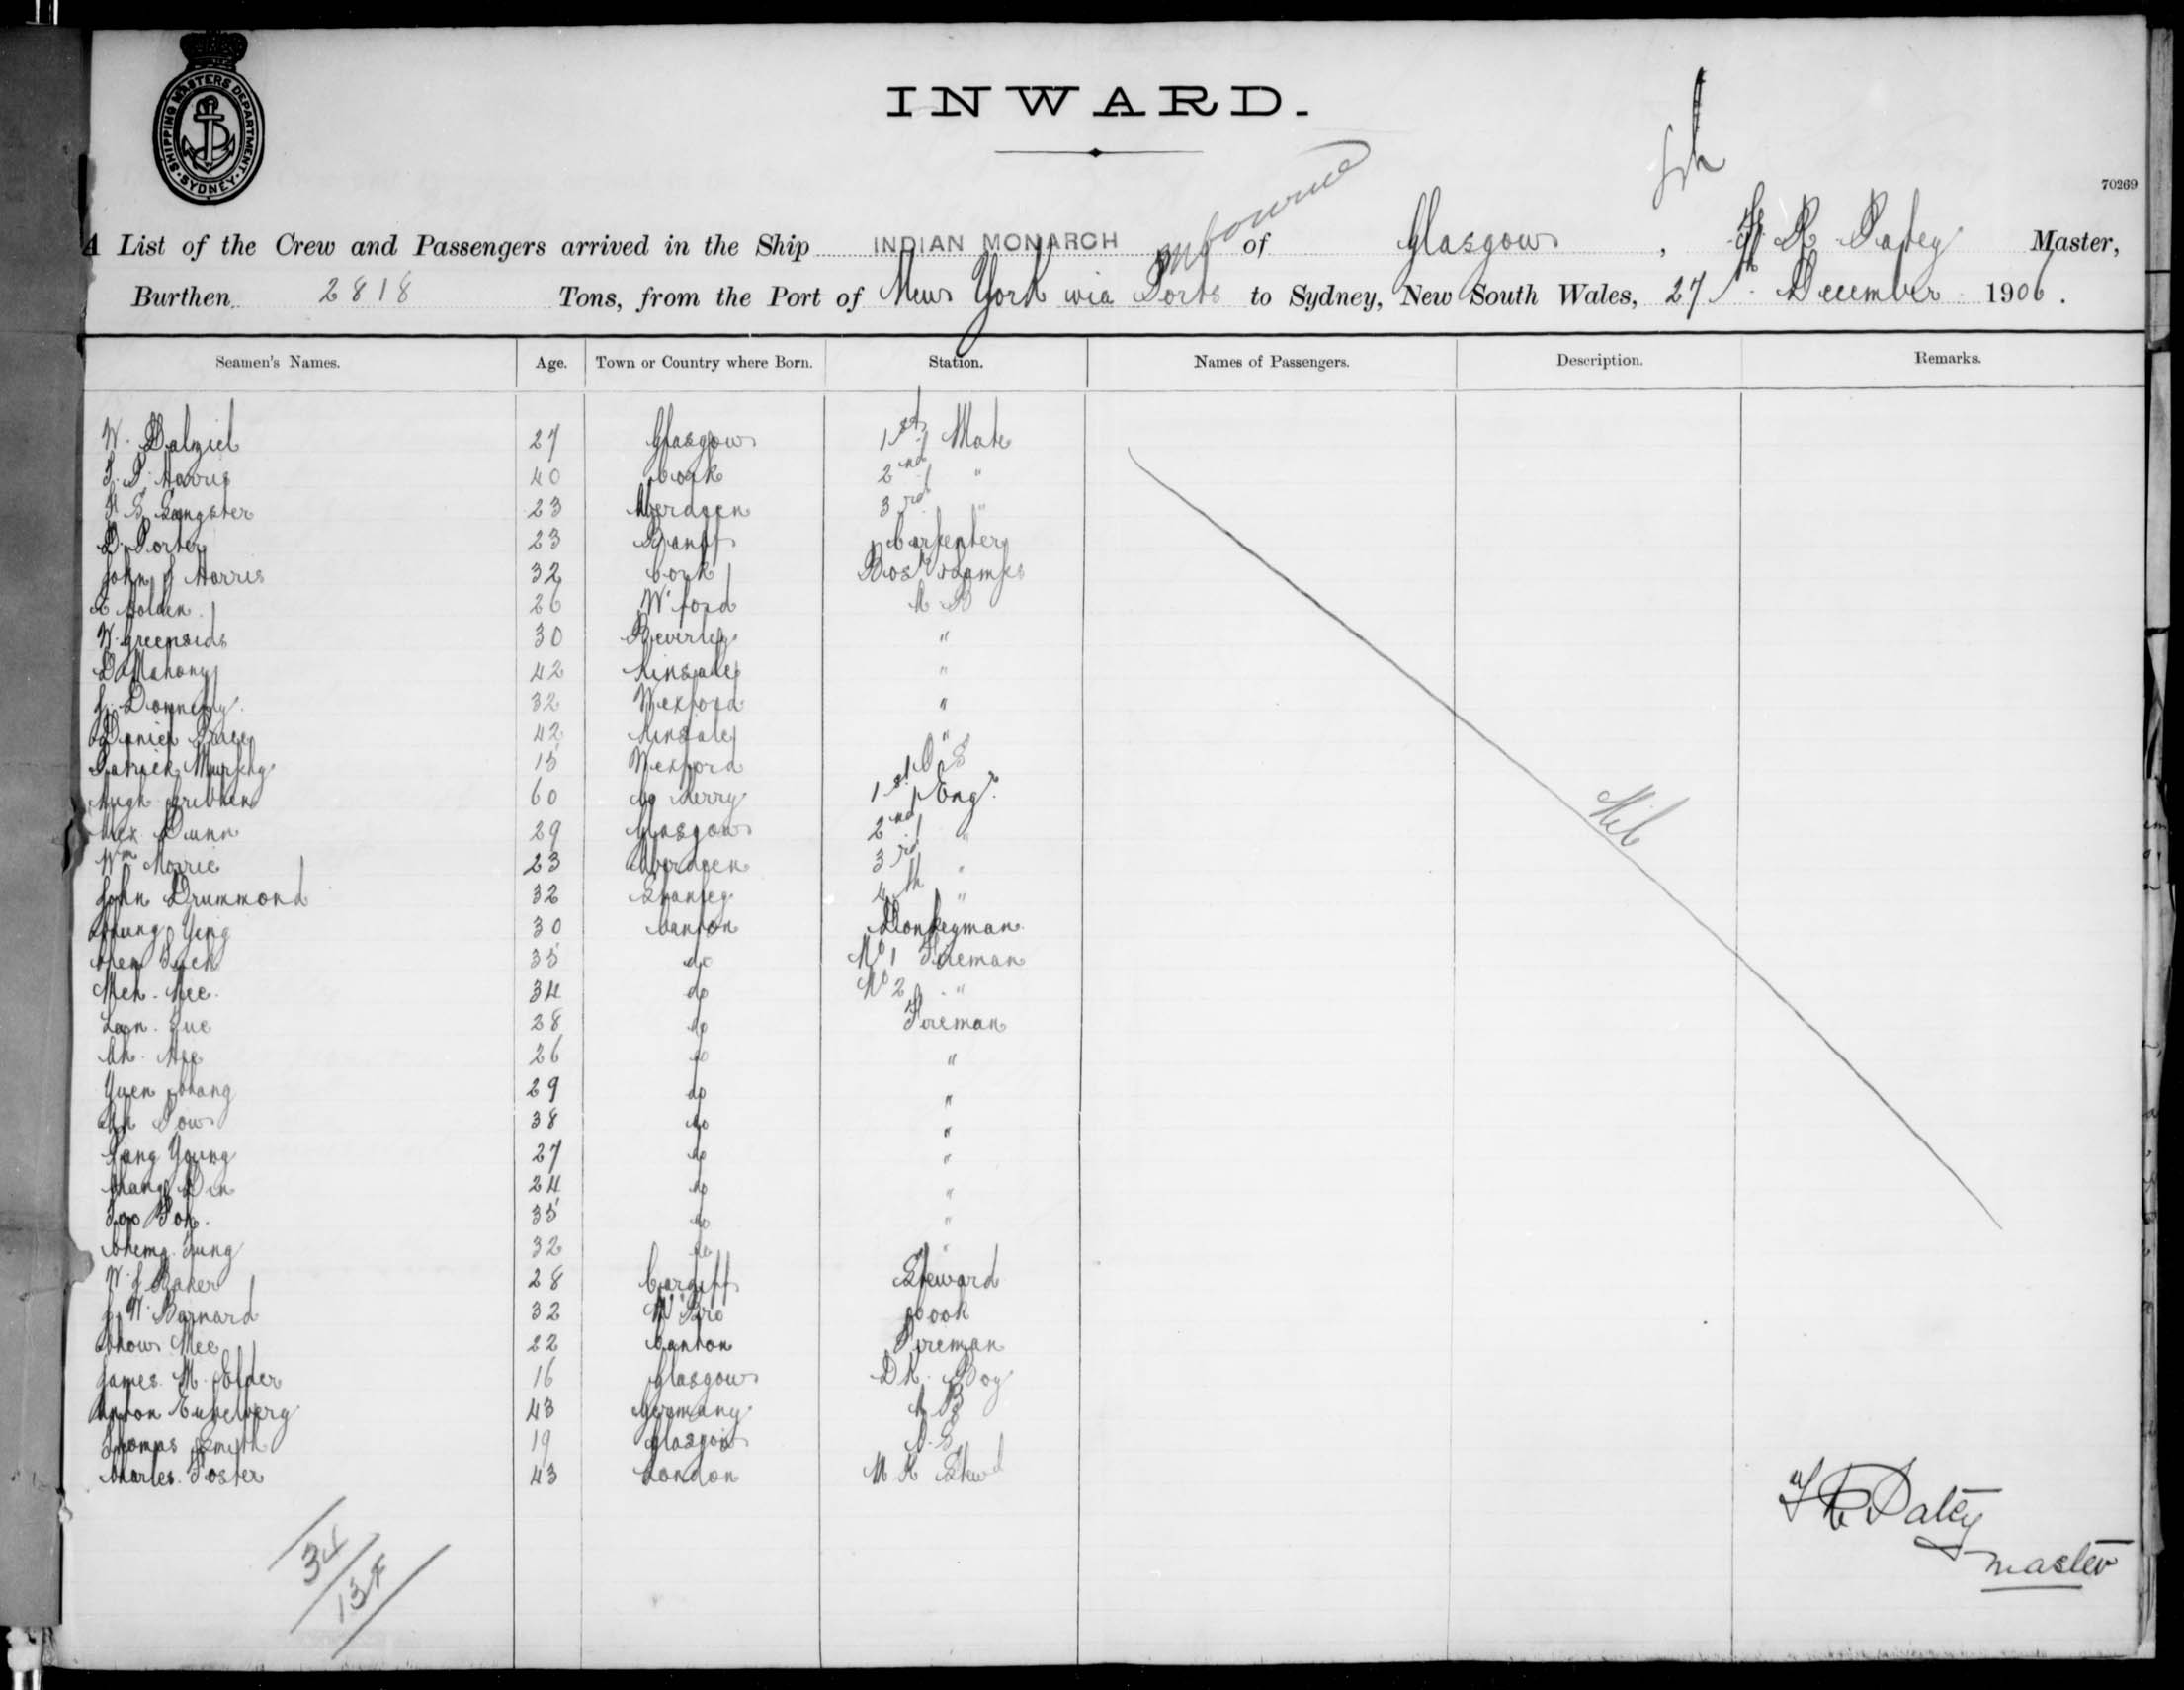 SHIPPING MASTERS DEPARTMENT · SYDNEY ·
INWARD.
70269
A List of the Crew and Passengers arrived in the Ship INDIAN MONARCH of Glasgow, Master,
Burthen 2818 Tons, from the Port of New York via Ports to Sydney, New South Wales, 27th December 1906.
Seamen's Names. Age. Town or Country where Born. Station. Names of Passengers. Description. Remarks.
W. Dalziel 27 Glasgow 1st Mate
40 Cork 2nd "
Sangster 23 Aberdeen 3rd "
D. Porter 23 Banff Carpenter
John J Harris 32 Cork Bos & Lamps
Holden 26 W'ford A B
W. Greensids 30 Beverley "
D Mahony 42 Kinsale "
J. Donnelly 32 Wexford "
Daniel Price 42 Kinsale "
Patrick Murphy 15 Wexford O S
Hugh Gribben 60 Co Derry 1st Engr.
Alex Dunn 29 Glasgow 2nd "
Wm Morrice 23 Aberdeen 3rd "
John Drummond 32 Stanley 4th "
Chung Ying 30 Canton Donkeyman
35 do No 1 Fireman
Mee 34 do No 2 "
28 do Fireman
Ah. 26 do "
Yuen Chang 29 do "
Ah 38 do "
Young 27 do "
Chang Din 24 do "
35 do "
Cheng 32 do "
W. J Baker 28 Cardiff Steward
J. W. Barnard 32 M'Bro Cook
Chow Mee 22 Canton Fireman
James M. Elder 16 Glasgow Dk. Boy
Anton 43 Germany A B
Thomas Smith 19 Glasgow O. S.
Charles Foster 43 London M R Stewd
Nil
34
13
Master